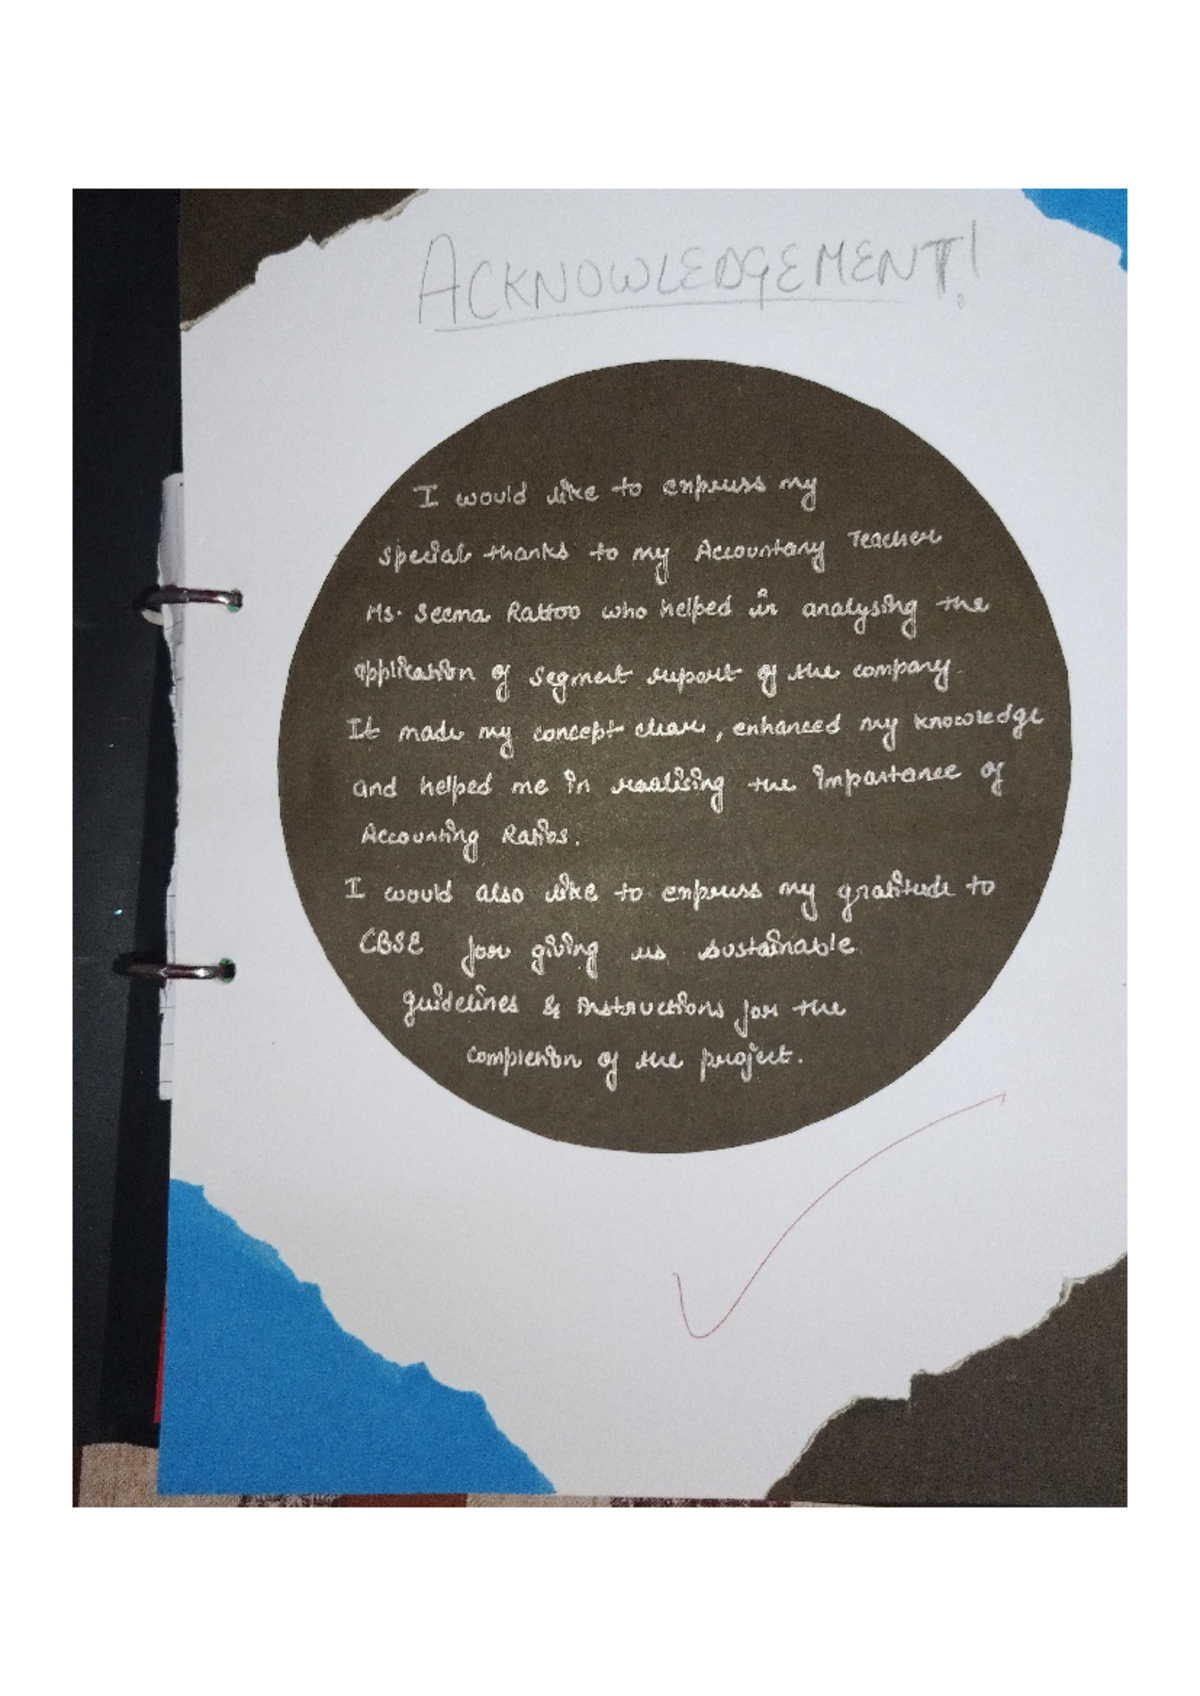 ACKNOWLEDGEMENT!
I would like to express my
special thanks to my Accountancy Teacher
Ms. Seema Rattoo who helped in analysing the
application of segment report of the company
It made my concept clear, enhanced my knowledge
and helped me in realising the importance of
Accounting Ratios.
I would also like to express my gratitude to
CBSE for giving us sustainable
guidelines & instructions for the
completion of the project.